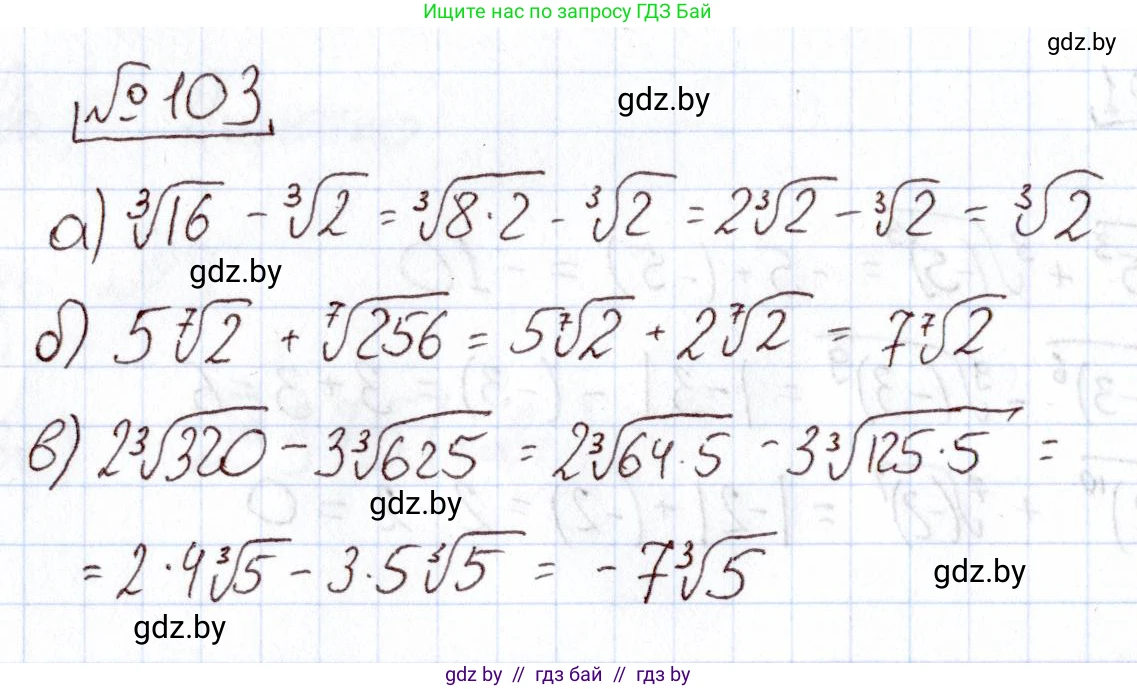 Ищите нас по запросу ГДЗ Бай
gdz.by
№ 103
gdz.by
а) ∛16 - ∛2 = ∛(8·2) - ∛2 = 2∛2 - ∛2 = ∛2
gdz.by
б) 5 ⁷√2 + ⁷√256 = 5 ⁷√2 + 2 ⁷√2 = 7 ⁷√2
в) 2∛320 - 3∛625 = 2∛(64·5) - 3∛(125·5) =
gdz.by
= 2·4∛5 - 3·5∛5 = -7∛5
gdz.by
gdz.by
gdz.by // гдз бай // гдз by